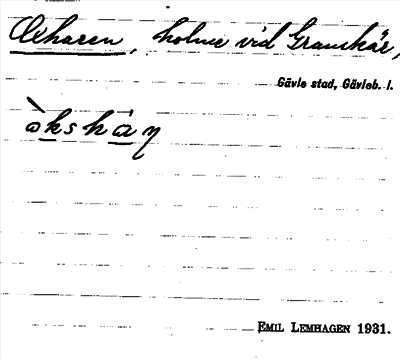 Oxharen, holme vid Granskär,
Gävle stad, Gävleb. l.
òkshạṇ
EMIL LEMHAGEN 1931.